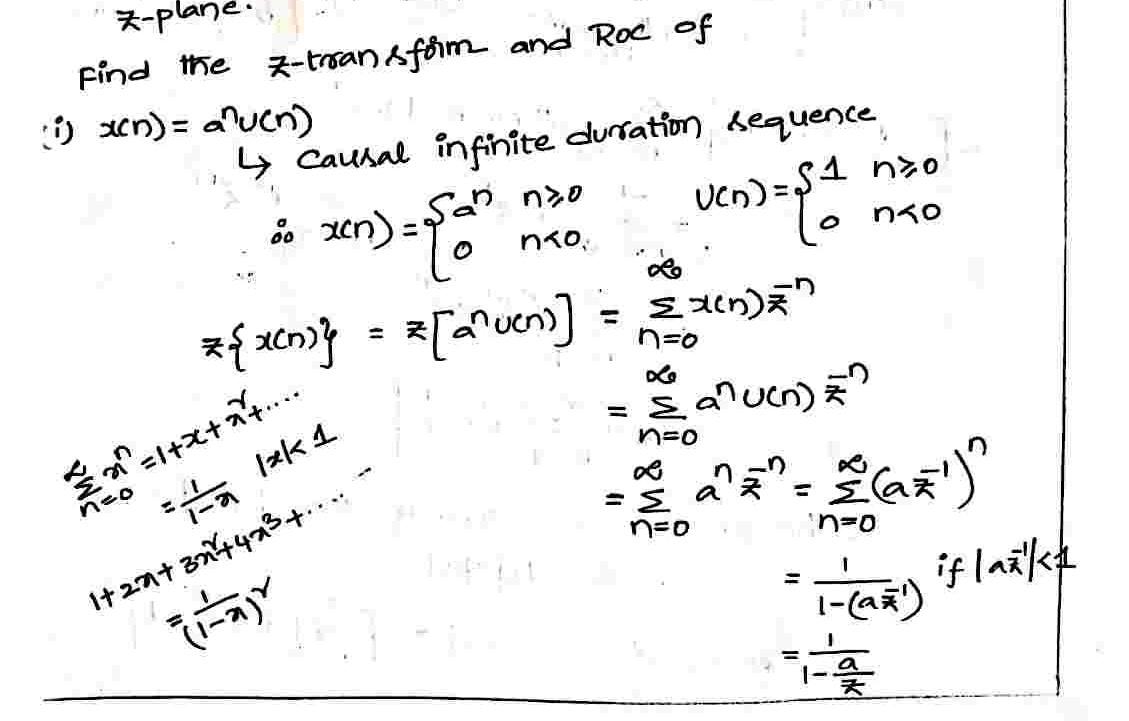 z-plane.
Find the z-transform and Roc of
i) x(n) = aⁿu(n)
↳ Causal infinite duration sequence
∴ x(n) = { aⁿ n≥0
0 n<0.
U(n) = { 1 n≥0
0 n<0
z{x(n)} = z[aⁿu(n)] = ∑_{n=0}^{∞} x(n) z⁻ⁿ
= ∑_{n=0}^{∞} aⁿ u(n) z⁻ⁿ
= ∑_{n=0}^{∞} aⁿ z⁻ⁿ = ∑_{n=0}^{∞} (az⁻¹)ⁿ
= 1/(1-(az⁻¹)) if |az⁻¹|<1
= 1/(1-a/z)
∑_{n=0}^{∞} xⁿ = 1+x+x²+....
= 1/(1-x) |x|<1
1+2x+3x²+4x³+....
= 1/(1-x)²